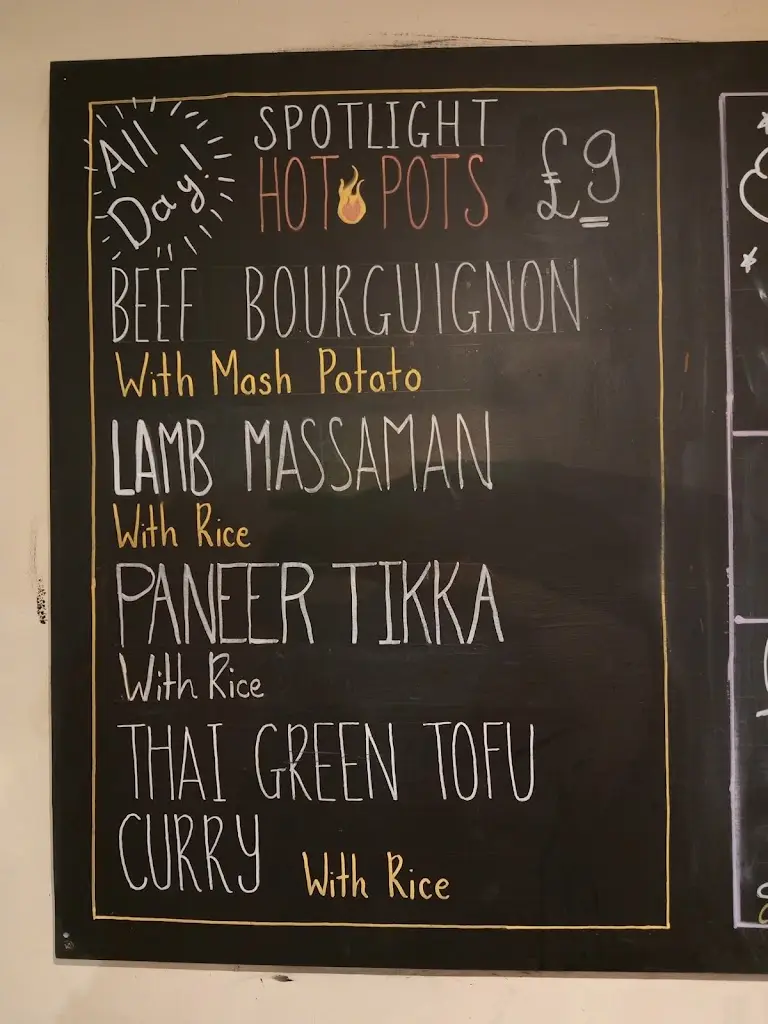 All
Day!
SPOTLIGHT
HOT POTS
£9
BEEF BOURGUIGNON
With Mash Potato
LAMB MASSAMAN
With Rice
PANEER TIKKA
With Rice
THAI GREEN TOFU
CURRY With Rice